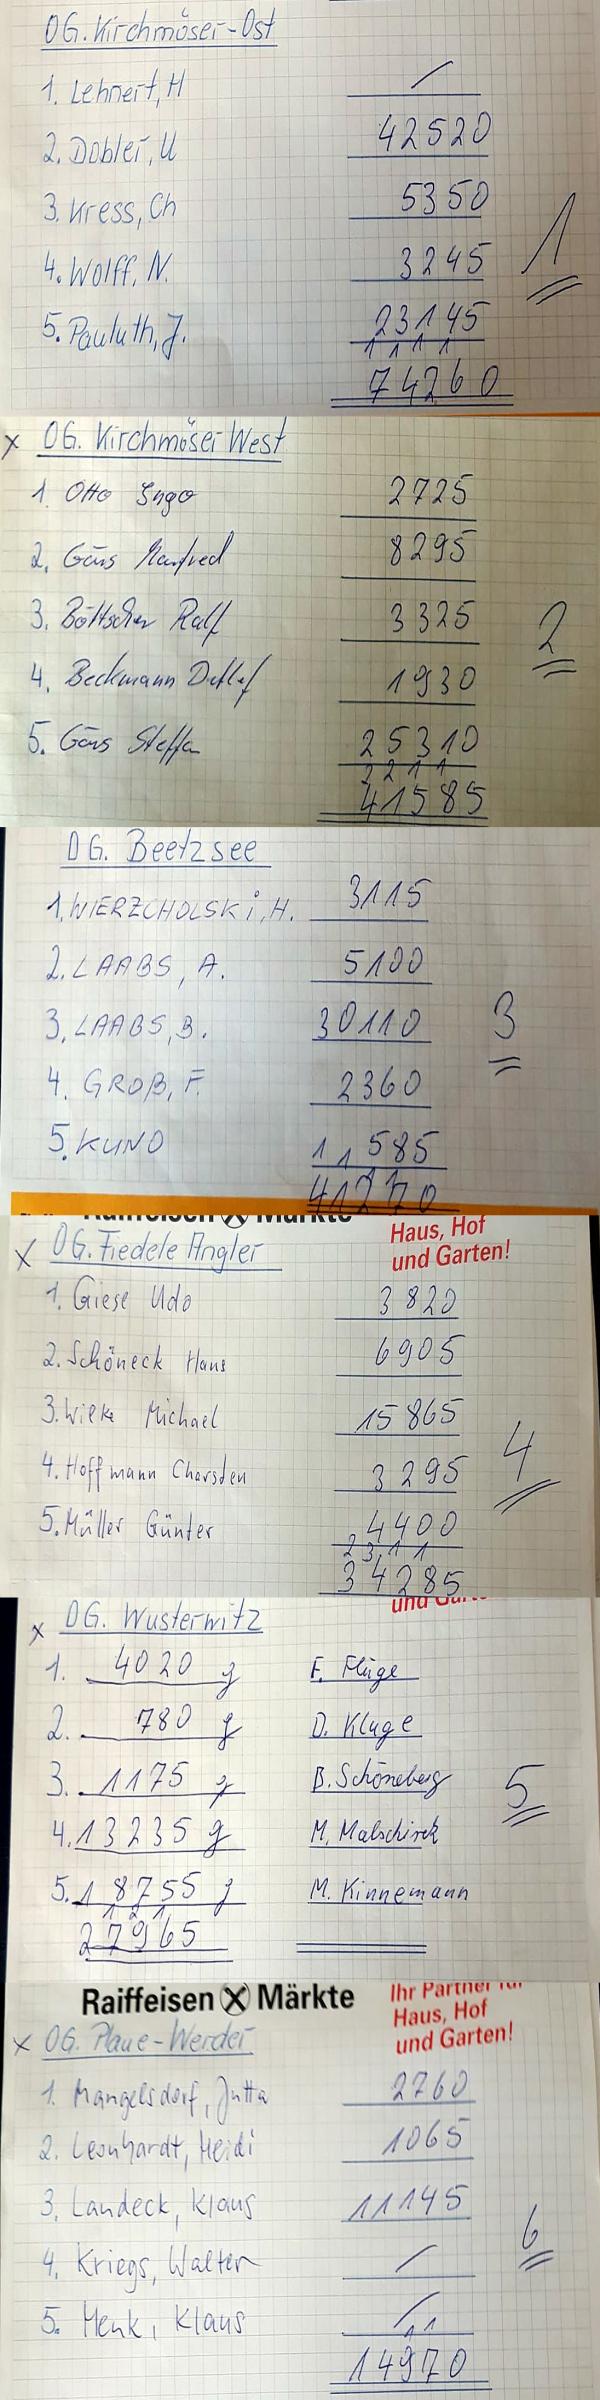 OG. Kirchmöser-Ost
1. Lehnert, H /
2. Döbler, U 42520
3. Kress, Ch 5350
4. Wolff, N. 3245
5. Pauluth, J. 23145
1 1 1 1
74260
1
x OG. Kirchmöser West
1. Otto Ingo 2725
2. Görs Manfred 8295
3. Böttscher Ralf 3325
4. Beckmann Detlef 1930
5. Görs Steffen 25310
2 2 1 1
41585
2
OG. Beetzsee
1. WIERZCHOLSKi, H. 3115
2. LAABS, A. 5100
3. LAABS, B. 30110
4. GROß, F. 2360
5. KUNO 585
1 1 1 1
41270
3
Raiffeisen Märkte
Haus, Hof
und Garten!
x OG. Fiedele Angler
1. Giese Udo 3820
2. Schöneck Hans 6905
3. Wilke Michael 15865
4. Hoffmann Chorsten 3295
5. Müller Günter 4400
2 3 1 1
34285
4
und Garten!
x OG. Wusterwitz
1. 4020 g F. Flüge
2. 780 g D. Kluge
3. 1175 g B. Schöneberg
4. 13235 g M. Malschirek
5. 18755 g M. Kinnemann
1 2 1
27965
5
Raiffeisen Märkte
Ihr Partner für
Haus, Hof
und Garten!
x OG. Plaue-Werder
1. Mangelsdorf, Jutta 2760
2. Leonhardt, Heidi 1065
3. Landeck, Klaus 11145
4. Kriegs, Walter /
5. Menk, Klaus /
1 1
14970
6